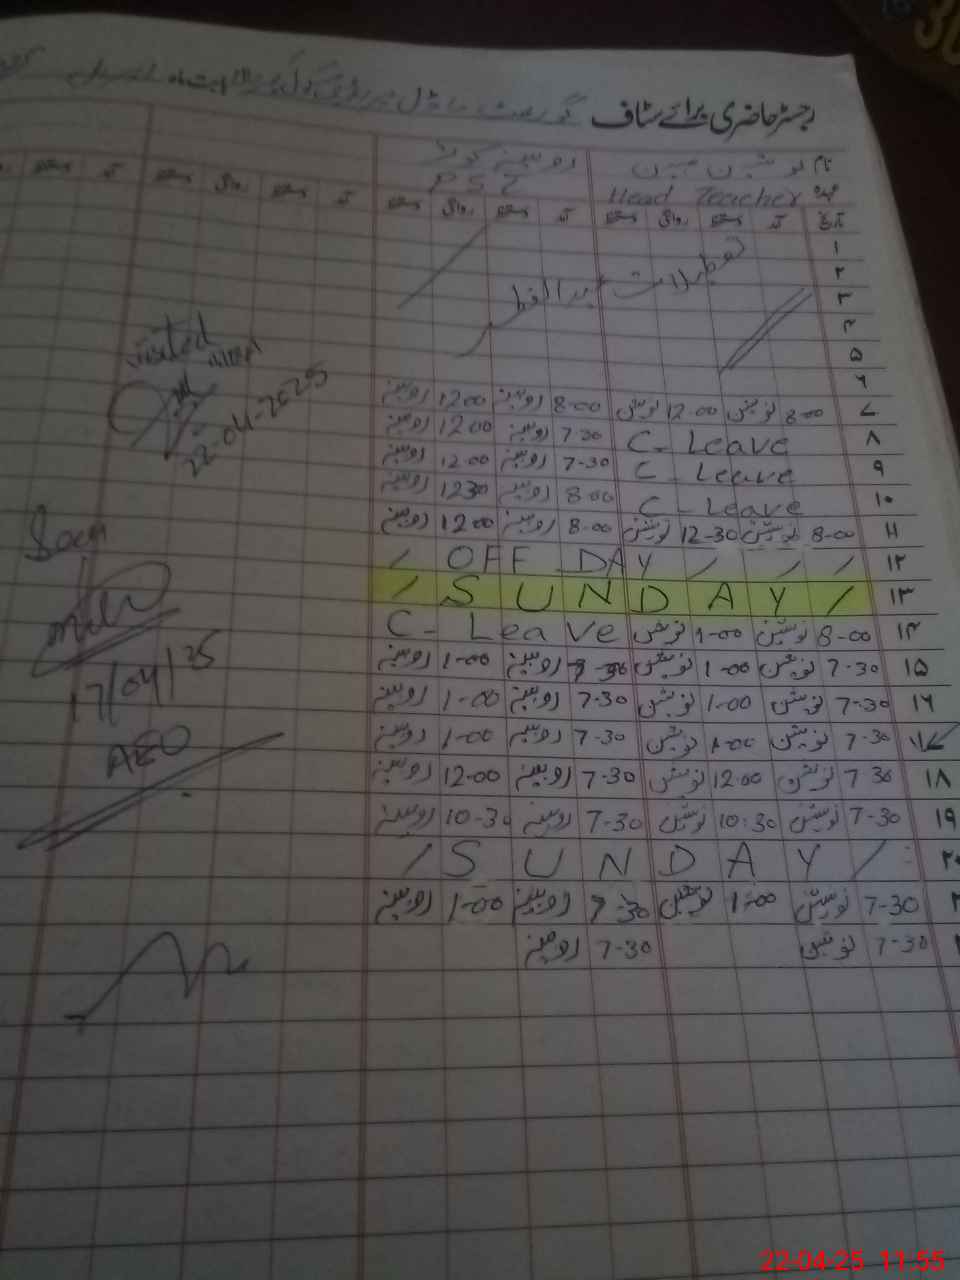 رجسٹر حاضری برائے سٹاف
نام نوشین روبینہ کوثر
عہدہ Head Teacher PST
تاریخ آمد دستخط روانگی دستخط آمد دستخط روانگی دستخط آمد دستخط روانگی دستخط آمد
۱
۲ تعطیلات عید الفطر
۳
۴
۵
۶
۷ 8-00 نوشین 12-00 نوشین 8-00 روبینہ 1200 روبینہ
۸ C- Leave 7-30 روبینہ 1200 روبینہ
۹ C- Leave 7-30 روبینہ 12-00 روبینہ
۱۰ C- Leave 8-00 روبینہ 1230 روبینہ
۱۱ 8-00 نوشین 12-30 نوشین 8-00 روبینہ 1200 روبینہ
۱۲ / OFF DAY / / /
۱۳ / SUNDAY /
۱۴ 8-00 نوشین 1-00 نوشین C- Leave
۱۵ 7-30 نوشین 1-00 نوشین 7-30 روبینہ 1-00 روبینہ
۱۶ 7-30 نوشین 1-00 نوشین 7-30 روبینہ 1-00 روبینہ
۱۷ 7-30 نوشین 1-00 نوشین 7-30 روبینہ 1-00 روبینہ
۱۸ 7-30 نوشین 12-00 نوشین 7-30 روبینہ 12-00 روبینہ
۱۹ 7-30 نوشین 10:30 نوشین 7-30 روبینہ 10-30 روبینہ
۲۰ / SUNDAY /
7-30 نوشین 1-00 نوشین 7-30 روبینہ 1-00 روبینہ
7-30 نوشین 7-30 روبینہ
visited
22-04-2025
Seen
17/04/25
AEO
22-04-25 11:55